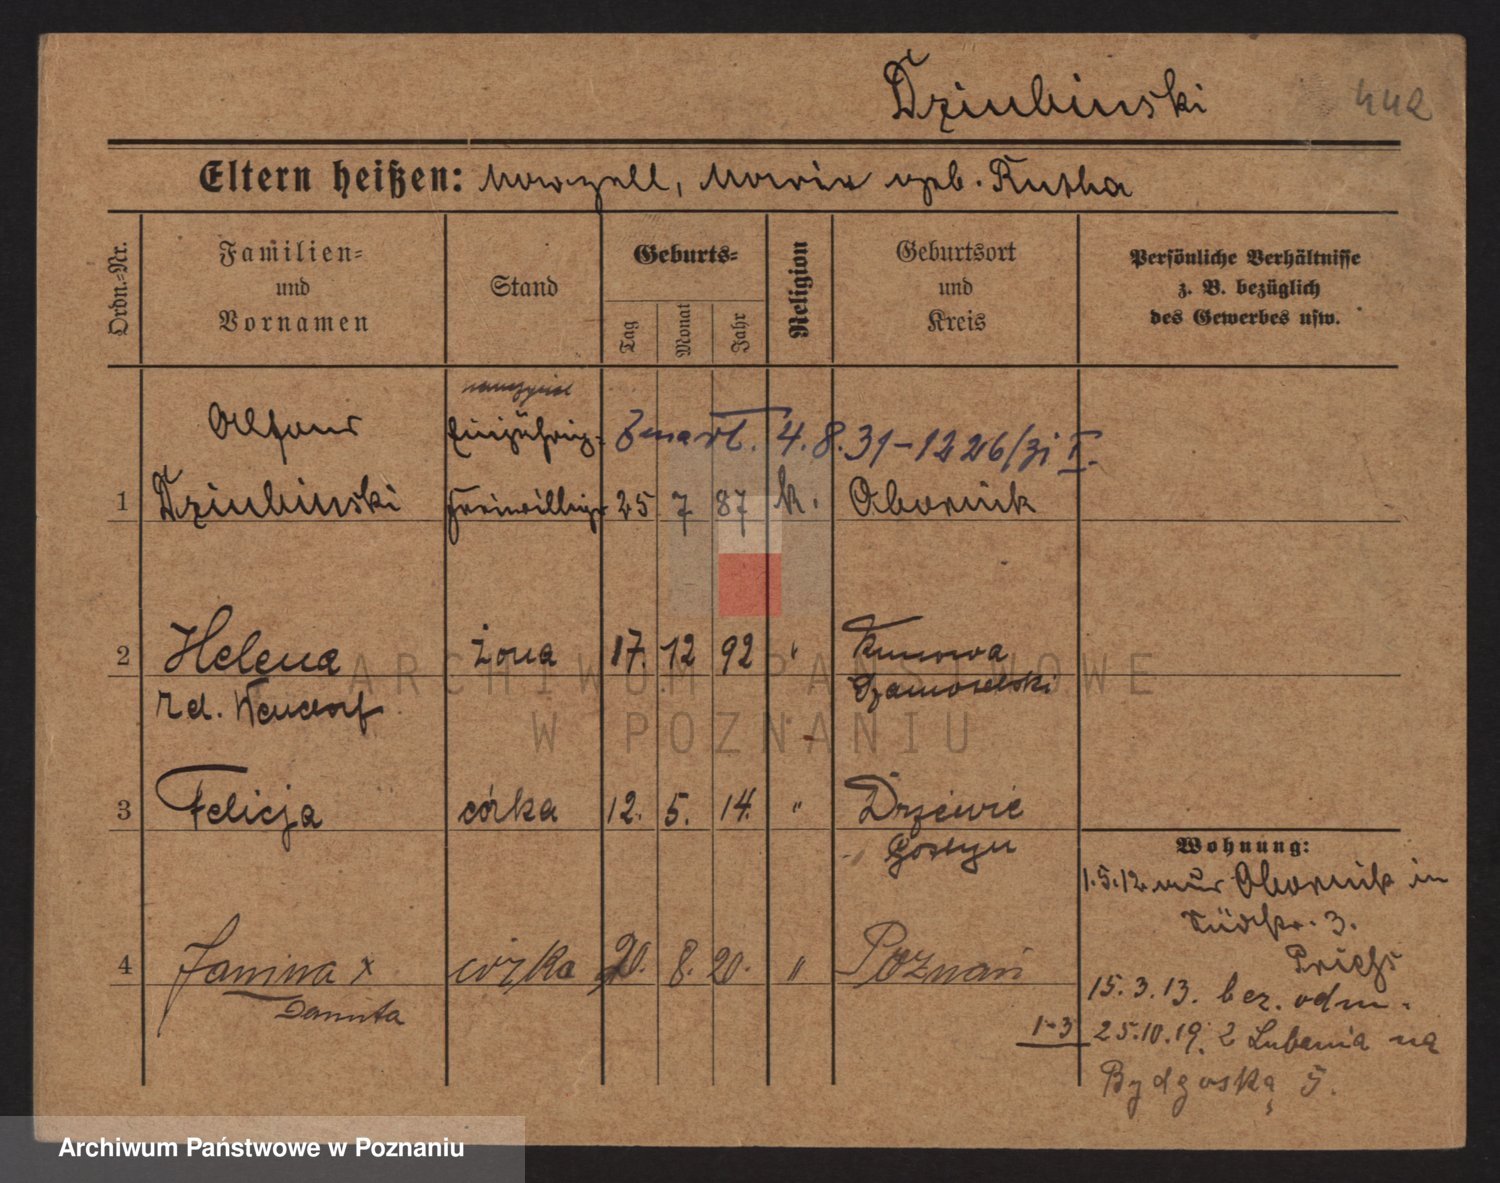 Dziubinski
442
Eltern heißen: Marzell, Maria geb. Kutha
Ordn.-Nr.
Familien-
und
Vornamen
Stand
Geburts-
Tag
Monat
Jahr
Religion
Geburtsort
und
Kreis
Persönliche Verhältnisse
z. B. bezüglich
des Gewerbes usw.
nauczyciel
Alfons
Einjährig-
zmarł. 4.8.31-1226/31 I.
1
Dziubinski
Freiwillig.
25
7
87
k.
Obornik
2
Helena
żona
17.
12
92
"
Szamotulski
3
Felicja
córka
12.
5.
14.
"
Drzewce
Gostyń
Wohnung:
1.5.12 aus Obornik in
Südstr. 3.
4
Janina x
córka
20.
8.
20.
"
Poznań
Danuta
15.3.13. bez. odm.
1-3
25.10.19. z Lubania na
Bydgoską 5.
ARCHIWUM PAŃSTWOWE
W POZNANIU
Archiwum Państwowe w Poznaniu